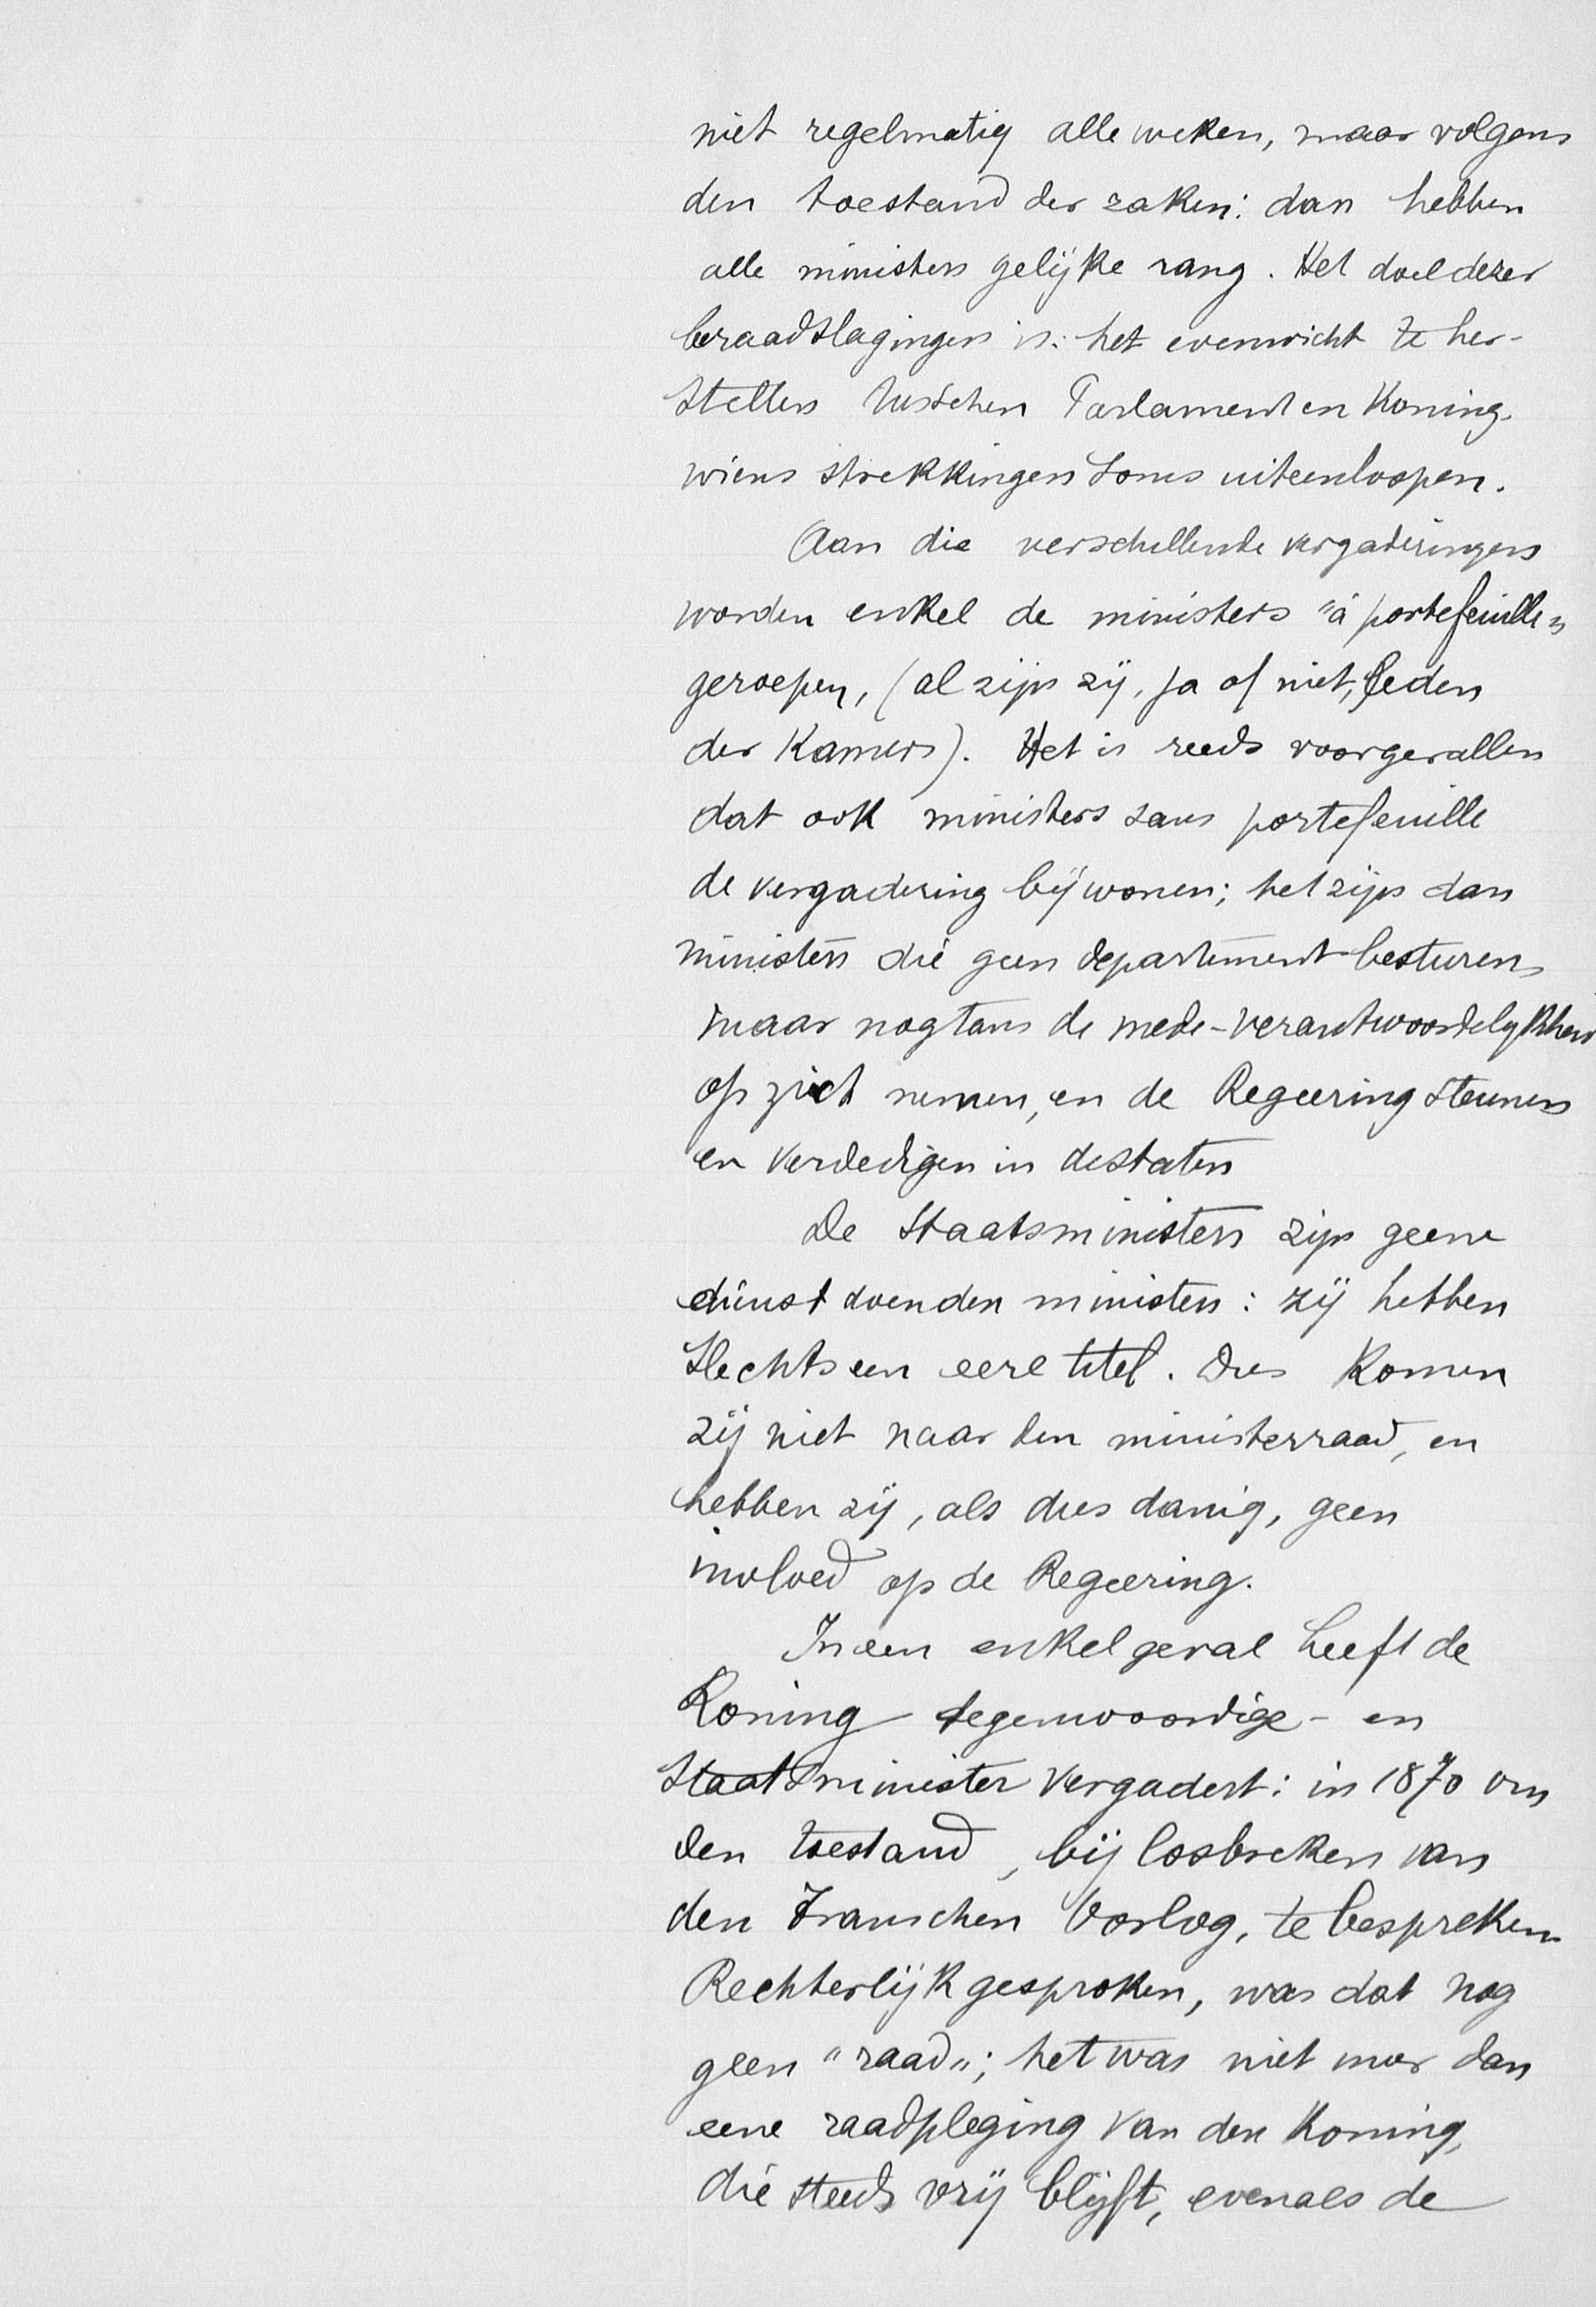 niet regelmatig alle weken, maar volgens
den toestand der zaken: dan hebben
alle ministers gelijke rang. Het doel dezer
beraadslagingen is: het evenwicht te her-
stellen tusschen Parlament en Koning,
wiens strekkingen soms uiteenloopen.
Aan die verschillende vergaderingen
worden enkel de ministers "à portefeuille"
geroepen, (al zijn zij, ja of niet, leden
der Kamers). Het is reeds voorgevallen
dat ook ministers sans portefeuille
de vergadering bijwonen; het zijn dan
ministers die geen departement besturen,
maar nogtans de mede-verantwoordelijkheid
op zich nemen, en de Regeering steunen
en verdedigen in destaten
De Staatsministers zijn geene
dienstdoenden ministers: zij hebben
slechts een eeretitel. Dus komen
zij niet naar den ministerraad, en
hebben zij, als dusdanig, geen
invloed op de Regeering.
In een enkel geval heeft de
Koning tegenwoordige- en
Staatsminister vergadert: in 1870 om
den toestand, bij losbreken van
den Franschen Oorlog, te bespreken
Rechterlijk gesproken, was dat nog
geen "raad"; het was niet meer dan
eene raadpleging van den Koning,
die steeds vrij blijft, evenals de